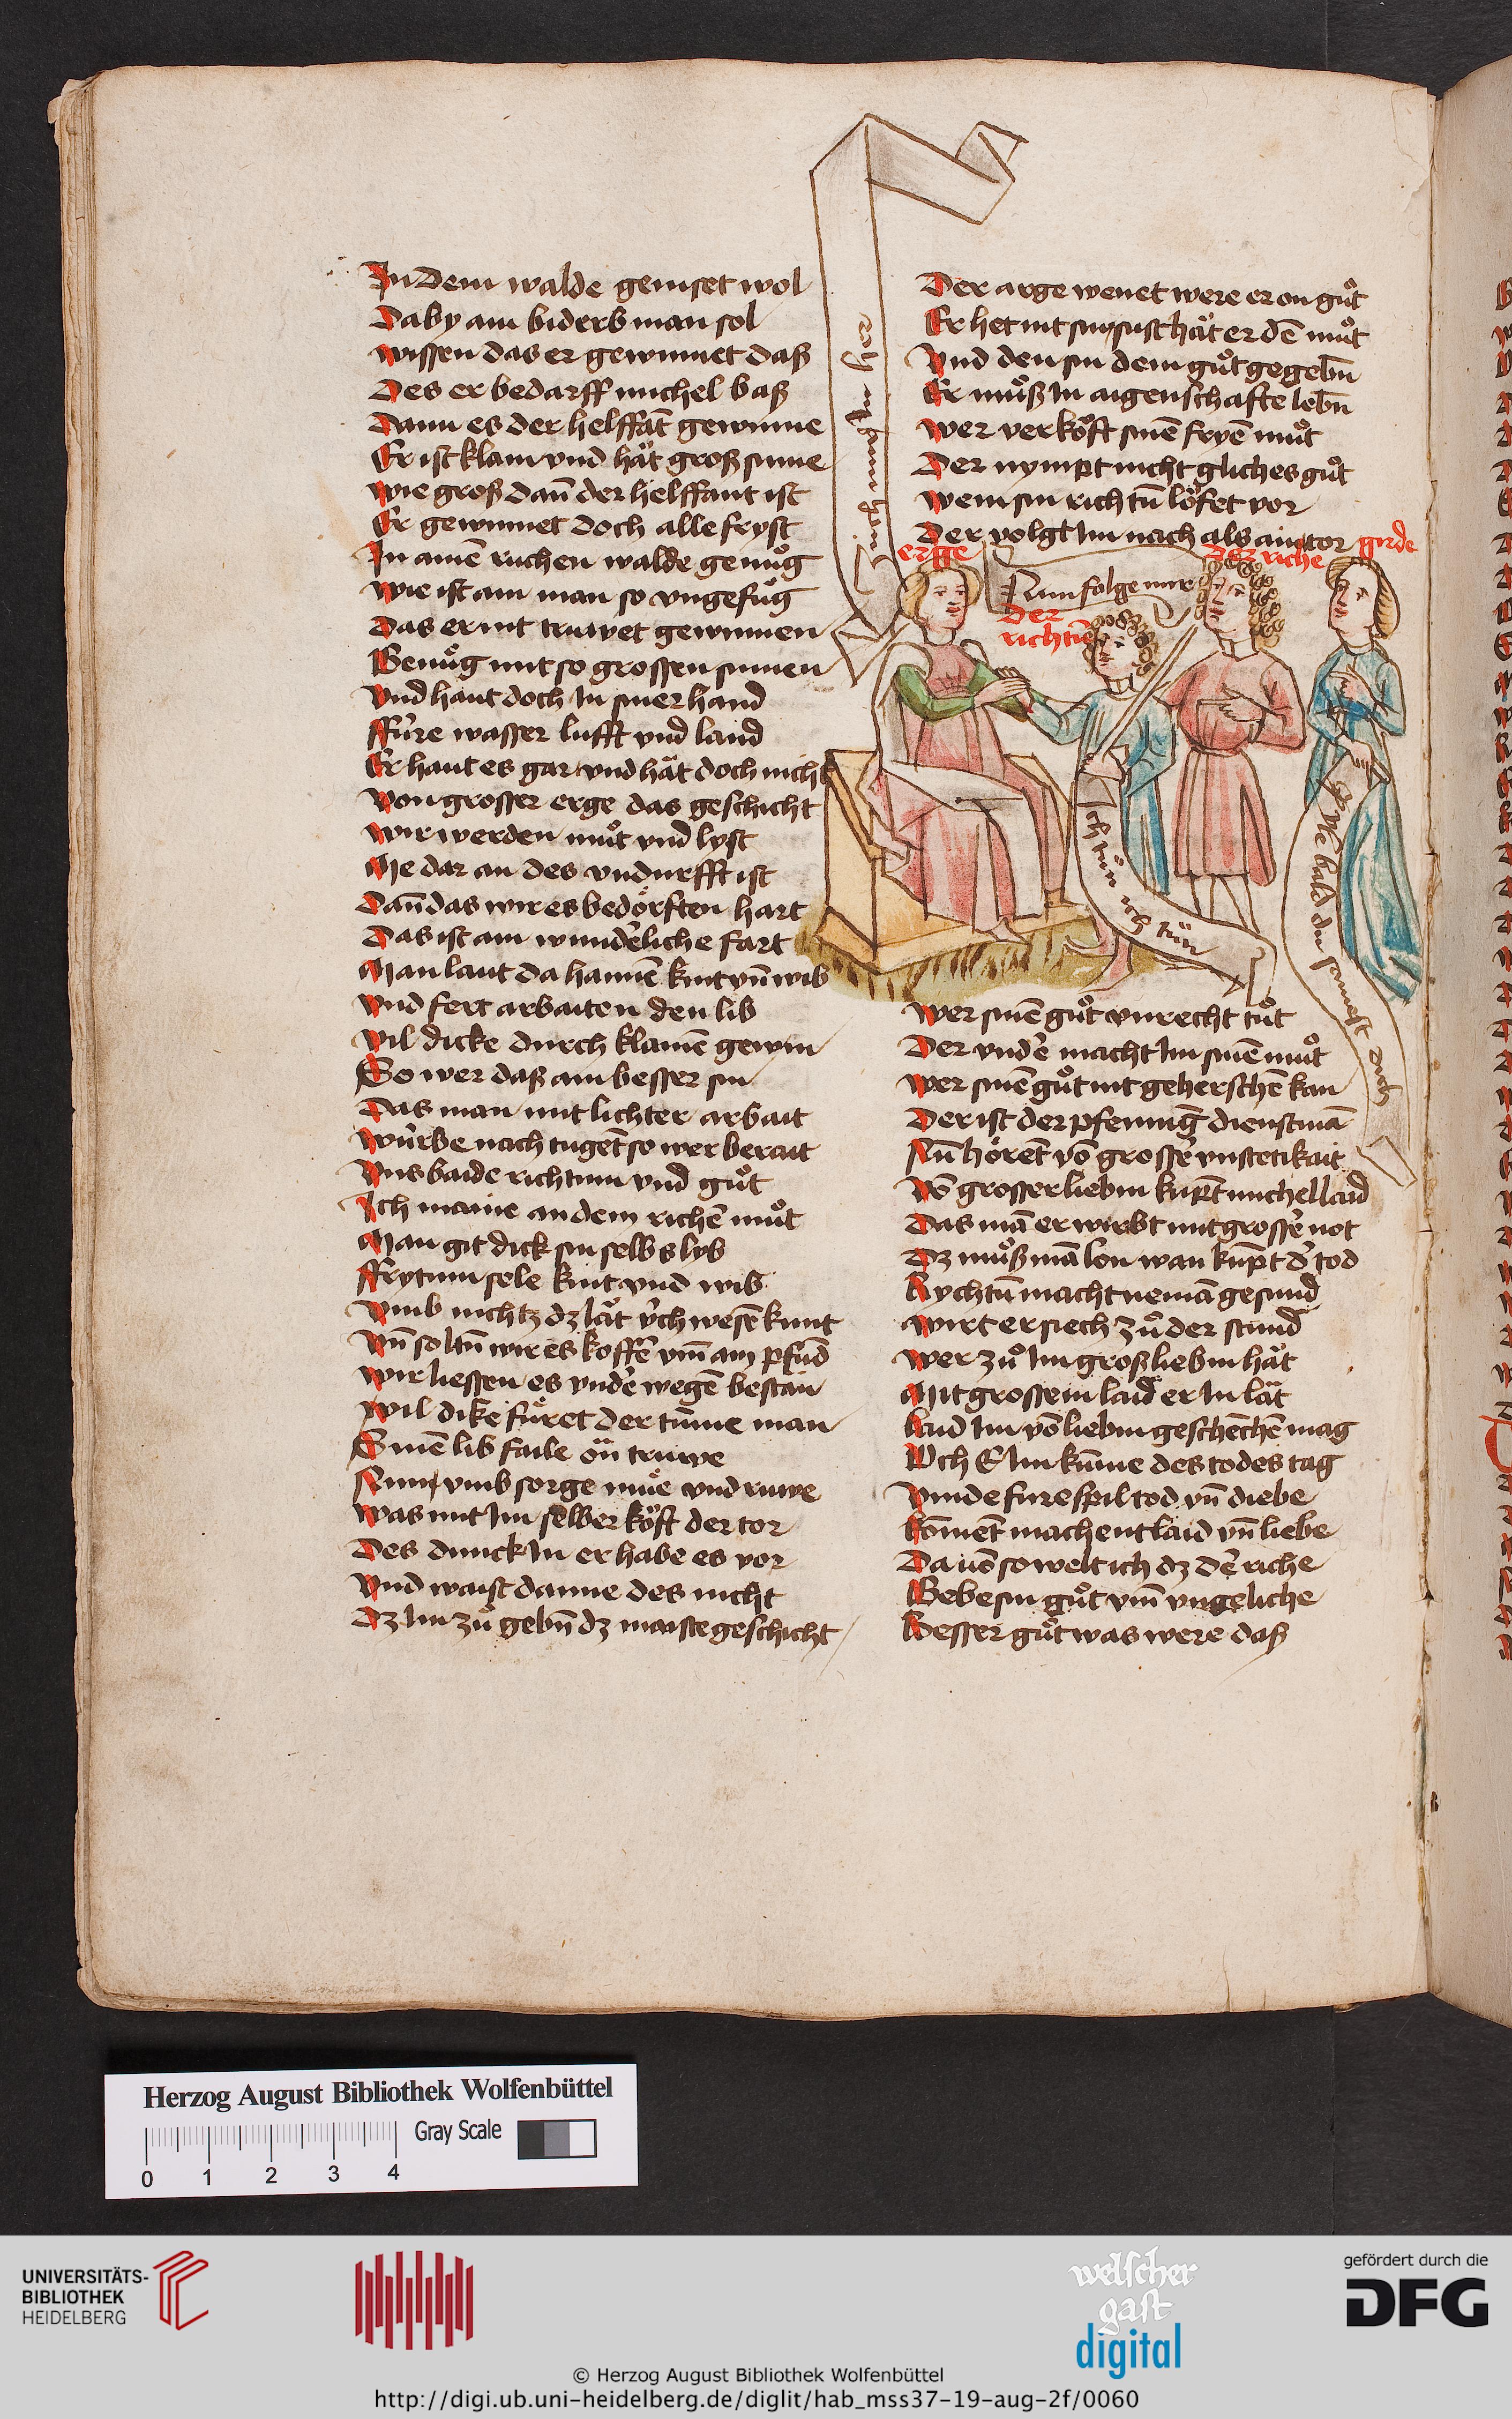 In dem walde geniset wol
Daby ain biderb man sol
Wissen das er gewinnet daß
Des er bedarff michel baß
Dann es der helffāt gewinne
Er ist klain vnd hät groß sinne
Wie groß dañ der helffant ist
Er gewinnet doch alle fryst
In ainē ruchen walde genuͦg
Wie ist ain man so vngefuͦg
Das er nit truwet gewinnen
Genuͦg mit so grossen sinnen
Vnd haut doch In siner hand
ffüre wasser lufft vnd land
Er haut es gar vnd hät doch nicht
Von grosser erge das geschicht
Wir werden muͦt vnd lyst
Me dar an des vndurfft ist
Dañ das wir es bedörften hart
Das ist ain wundēliche fart
Man laut da haimē kint vñ wib
Vnd fert arbaiten den lib
Vil dicke durch klainē gewin
So wer daß ain besser sin
Das man mit lichter arbait
Würbe nach tugēt so wer berait
Vns baide richtum vnd guͦt
Ich maine an dem richē muͦt
Man git dick sin selbs lyb
ffrytum sele kint vnd wib
Vmb nichtz dz lät v̈ch wesē kunt
Vñ soltñ wir es koffē vm̄ ain pfūd
Wir liessen es vndē wegē bestan
Wil dike füret der tūme man
Sinē lib faile ön truwe
Nun vmb sorge müe vnd ruwe
Was mit Im selber köft der tor
Des dunck In er habe es vor
Vnd waist danne des nicht
Dz Im zuͦ gebñ dz maiste geschicht
Der arge wenet were er on guͦt
Er het nit sin sust hät er dē muͦt
Vnd den sin dem guͦt gegebñ
Er muͦß In aigenschafte lebñ
Wer verköft sinē fryē muͦt
Der nympt nicht gliches guͦt
Wem sin richtū löfet vor
Der volgt Im nach als ain tor
girde
erge
riche
Nun folge mir
Der
richtū
Ich tün ich tün
dich
Wer sinē guͦt vnrecht tuͦt
Der vndē macht Im sinē muͦt
Wer sinē guͦt nit geherschē kan
Der ist der pfennig̃ dienstmā
Nū hörēt vō grossē vnstetikait
Vō grosser liebin kūpt michel laid
Das mā erwirbt mit grossē not
Dz muͦß mā lon wan kūpt d̄ tod
Rychtū macht nemā gesund
Wirt er siech zuͦ der stund
Wer zuͦ Im groß liebin hät
Mit grossem laid er In lät
Laid Im vō liebin geschēchē mag
Och E Im kūme des todes tag
Vinde fure spil tod vñ diebe
Kōment machent laid vñ liebe
Da vō so welt ich dz dē riche
Gebe sin guͦt vm̄ vngeliche
Besser guͦt was were daß
Herzog August Bibliothek Wolfenbüttel
0 1 2 3 4
Gray Scale
UNIVERSITÄTS-
BIBLIOTHEK
HEIDELBERG
welscher
gast
digital
gefördert durch die
DFG
© Herzog August Bibliothek Wolfenbüttel
http://digi.ub.uni-heidelberg.de/diglit/hab_mss37-19-aug-2f/0060